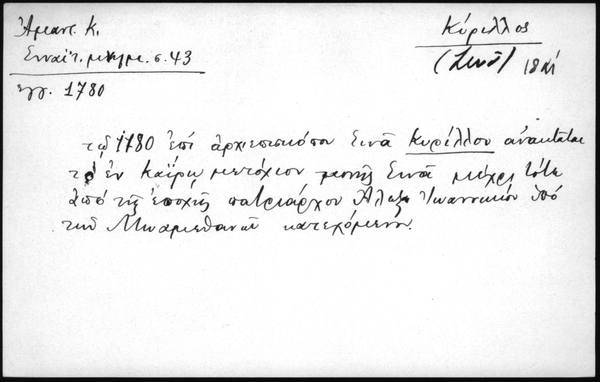 Ἀμαντ. Κ.
Σιναϊτ. μνημ. σ. 43
ἐγγ. 1780
Κύριλλος
(Σινᾶ) 18 αἰ
τῷ 1780 ἐπί ἀρχιεπισκόπου Σινᾶ Κυρίλλου ἀνακτᾶται
τό ἐν Καΐρῳ μετόχιον μονῆς Σινᾶ μέχρι τότε
ἀπό τῆς ἐποχῆς πατριάρχου Ἀλεξ. Ἰωαννικίου ὑπό
τῶν Μωαμεθανῶν κατεχόμενον.